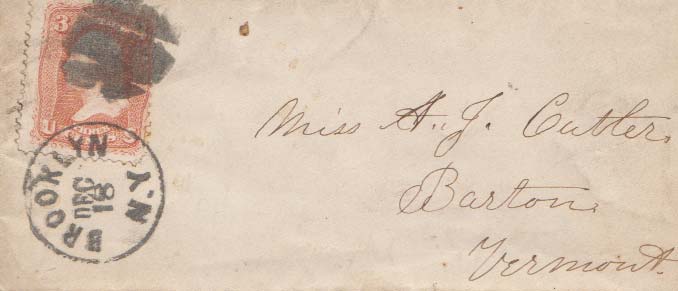 3
U
BROOKLYN N.Y
DEC
18
Miss A. J. Cutler
Barton
Vermont.